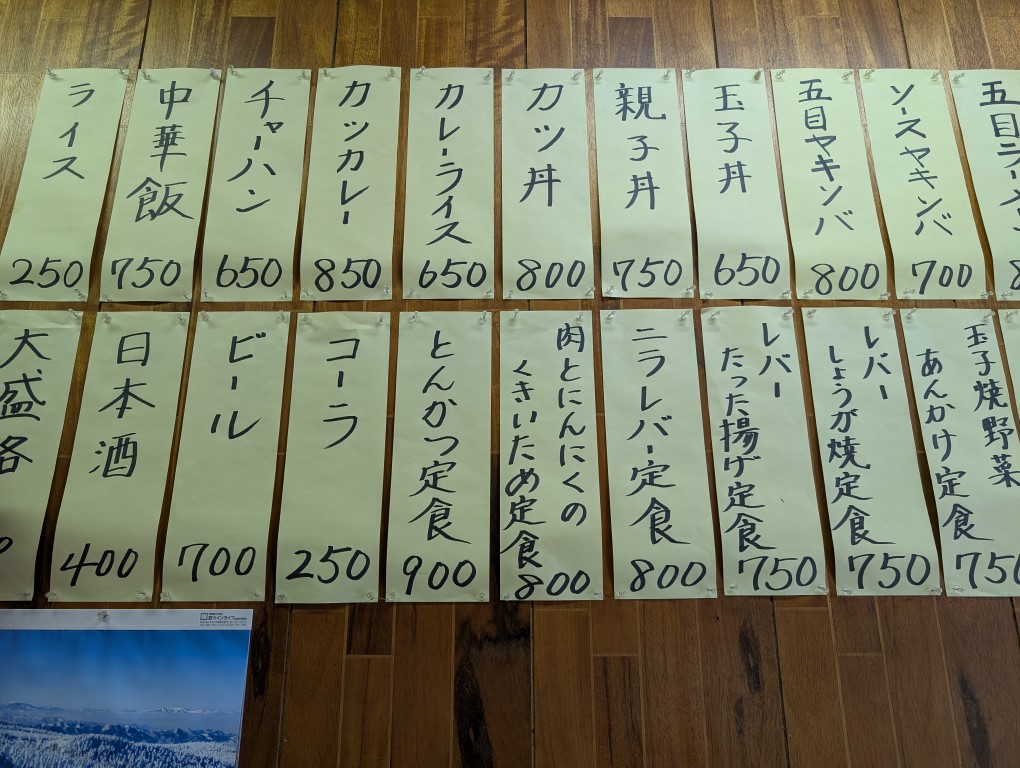 ライス
250
中華飯
750
チャーハン
650
カツカレー
850
カレーライス
650
カツ丼
800
親子丼
750
玉子丼
650
五目ヤキソバ
800
ソースヤキソバ
700
五目ラーメン
8
大盛各
0
日本酒
400
ビール
700
コーラ
250
とんかつ定食
900
肉とにんにくの
くきいため定食
800
ニラレバー定食
800
レバー
たった揚げ定食
750
レバー
しょうが焼定食
750
玉子焼野菜
あんかけ定食
750